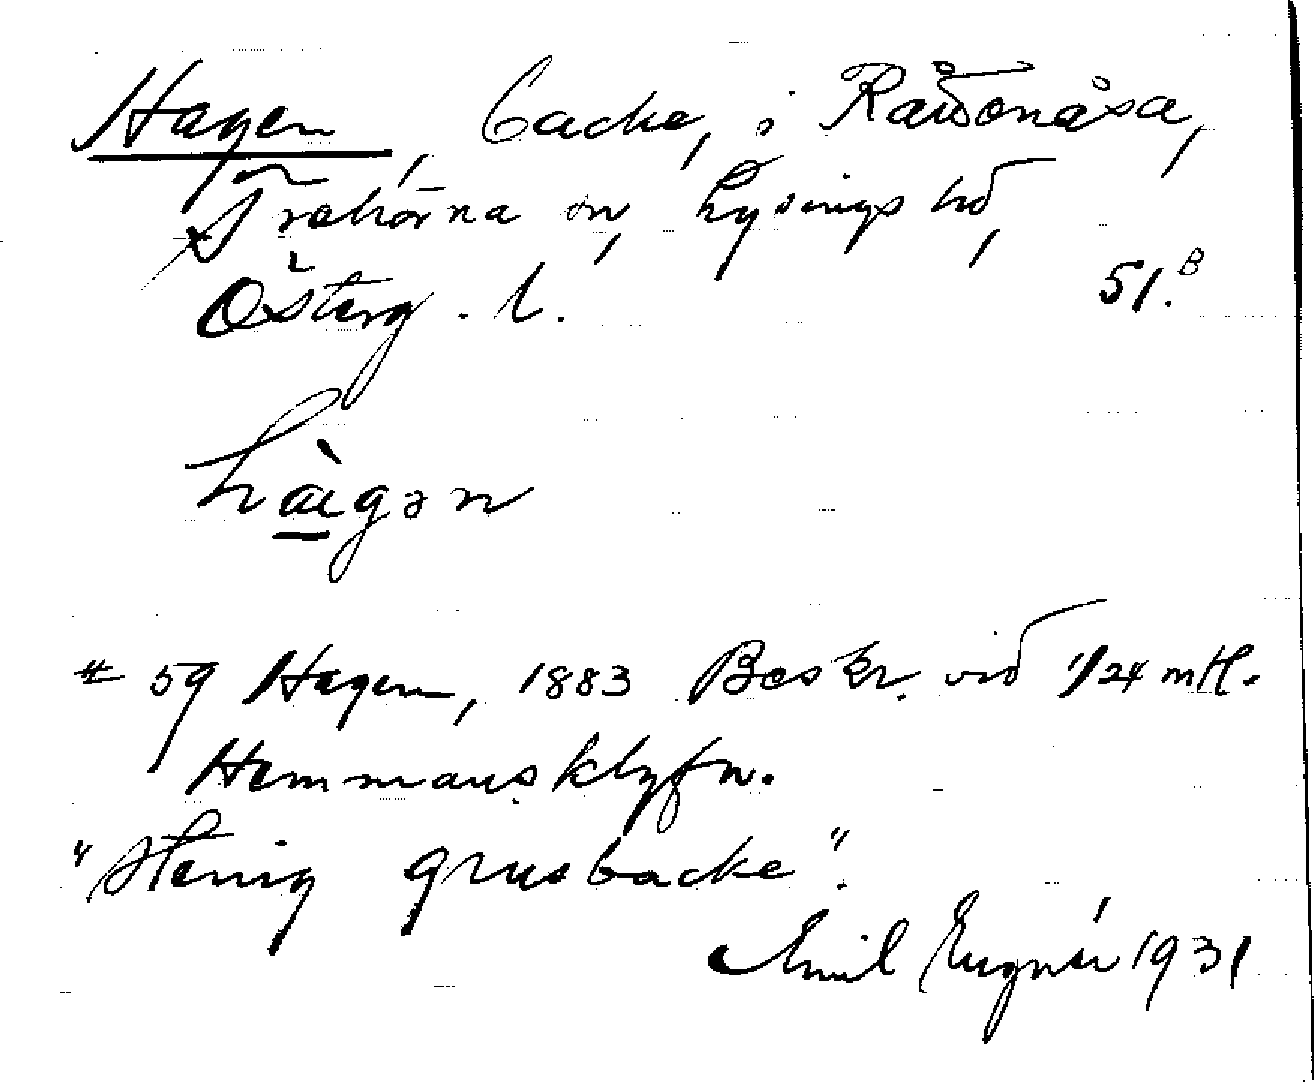 Hagen, backe, i Rådsnäsa,
Trehörna sn, Lysings hd,
Österg. l. 51.B
hàgən
# 59 Hagen, 1883 Beskr. vid 1/24 mtl.
Hemmansklyfn.
"Stenig grusbacke".
Emil 1931